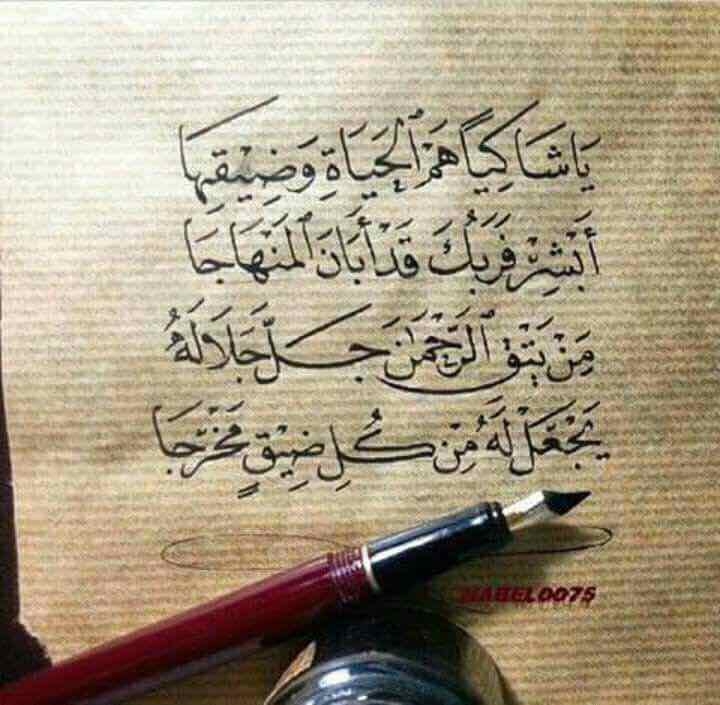 يَا شَاكِيًا هَمَّ ٱلْحَيَاةِ وَضِيْقِهَا
أَبْشِرْ فَرَبُّكَ قَدْ أَبَانَ ٱلْمَنْهَاجَا
مَنْ يَتَّقِ ٱلرَّحْمٰنَ جَلَّ جَلَالَهُ
يَجْعَلْ لَهُ مِنْ كُلِّ ضِيْقٍ مَخْرَجَا
NABEL0075